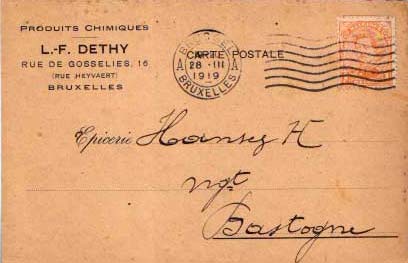 PRODUITS CHIMIQUES
L.-F. DETHY
RUE DE GOSSELIES, 16
(RUE HEYVAERT)
BRUXELLES
CARTE POSTALE
28 - III
1919
A A
BRUXELLES
Epicerie Hansez H
ngt
Bastogne